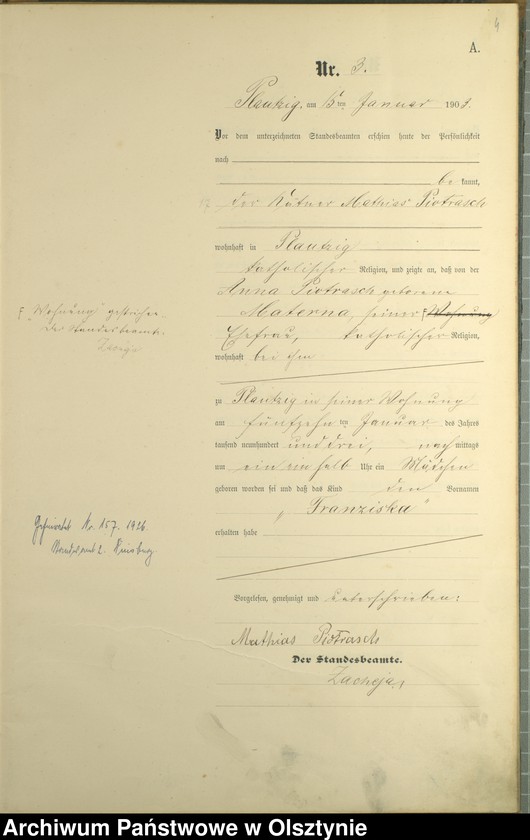 4
A.
Nr. 3.
Plautzig, am 15ten Januar 1903.
Vor dem unterzeichneten Standesbeamten erschien heute der Persönlichkeit
nach
be kannt,
der Kätner Mathias Piotrasch
wohnhaft in Plautzig
katholischer Religion, und zeigte an, daß von der
Anna Piotrasch geborene
Materna, seiner Wohnung
Ehefrau, katholischer Religion,
wohnhaft bei ihm
zu Plautzig in seiner Wohnung
am fünfzehn ten Januar des Jahres
tausend neunhundert und drei, nach mittags
um ein ein halb Uhr ein Mädchen
geboren worden sei und daß das Kind den Vornamen
„Franziska“
erhalten habe
Vorgelesen, genehmigt und unterschrieben:
Mathias Piotrasch
Der Standesbeamte.
Zacheja
„Wohnung gestrichen.
Der Standesbeamte.
Geheiratet Nr. 157. 1926
Standesamt
Archiwum Państwowe w Olsztynie